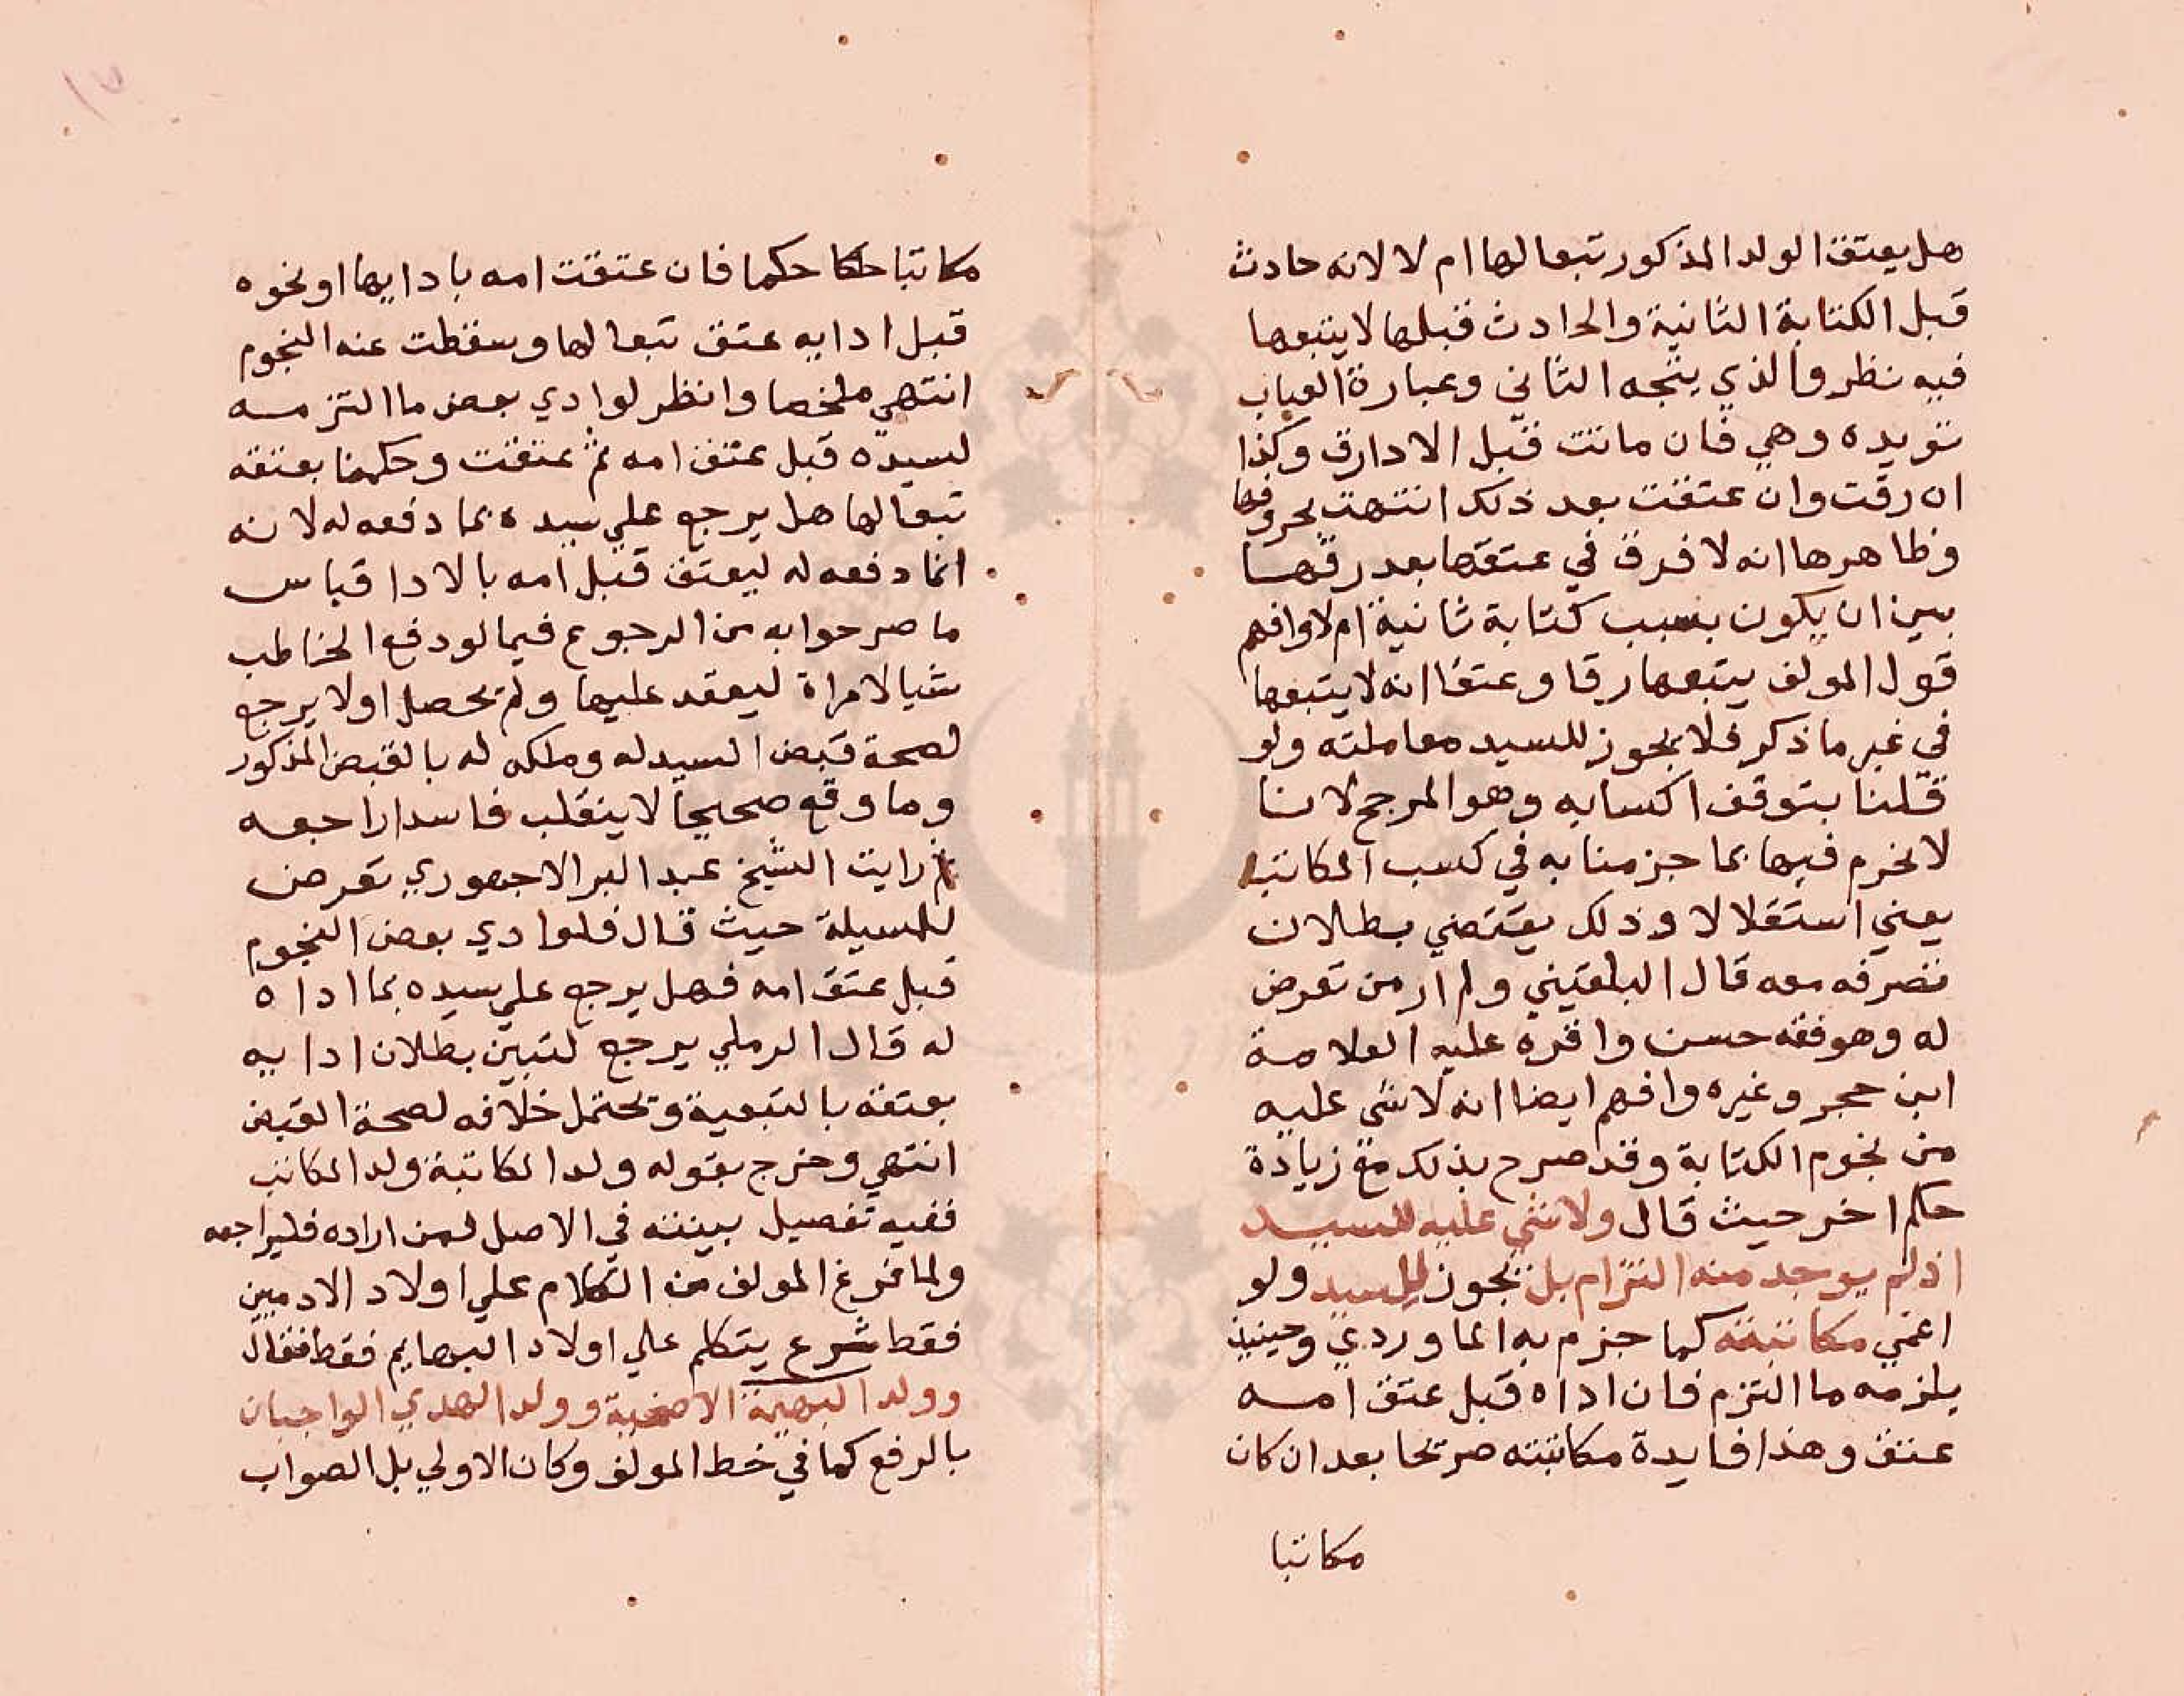 هل يعتق الولد المذكور تبعا لها ام لا لانه حادث
قبل الكتابة الثانية والحادث قبلها لا يتبعها
فيه نظر والذي يتجه الثاني وعبارة العباب
تويده وهي فان ماتت قبل الادا رق وكذا
ان رقت وان عتقت بعد ذلك انتهت بحروفها
وظاهرها انه لا فرق في عتقها بعد رقها
بين ان يكون بسبب كتابة ثانية ام لا وافهم
قول المولف يتبعها رقا وعتقا انه لا يتبعها
في غير ما ذكر فلا يجوز للسيد معاملته ولو
قلنا بتوقف اكسابه وهو المرجح لاننا
لا نخرم فيها بما جزمنا به في كسب المكاتب
يعني استقلالا وذلك يقتضي بطلان
تصرفه معه قال البلقيني ولم ار من تعرض
له وهو فقه حسن واقره عليه العلامة
ابن حجر وغيره وافهم ايضا انه لا شي عليه
من نجوم الكتابة وقد صرح بذلك مع زيادة
حكم اخر حيث قال ولا شي عليه للسيد
اذ لم يوجد منه التزام بل تجوز للسيد ولو
اعني مكاتبته كما جزم به الماوردي وحينيذ
يلزمه ما التزم فان اداه قبل عتق امه
عتق وهذا فايدة مكاتبته صريحا بعد ان كان
مكاتبا
مكاتبا حكما فان عتقت امه بادايها او نحوه
قبل ادايه عتق تبعا لها وسقطت عنه النجوم
انتهي ملخصا وانظر لو ادي بعض ما التزمه
لسيده قبل عتق امه ثم عتقت وحكمنا بعتقه
تبعا لها هل يرجع علي سيده بما دفعه له لانه
انما دفعه له ليعتق قبل امه بالادا قياس
ما صرحوا به من الرجوع فيما لو دفع الخاطب
شيا لامراة ليعقد عليها ولم يحصل او لا يرجع
لصحة قبض السيد له وملكه له بالقبض المذكور
وما وقع صحيحا لا ينقلب فاسدا راجعه
ثم رايت الشيخ عبد البر الاجهوري تعرض
للمسيلة حيث قال فلو ادي بعض النجوم
قبل عتق امه فهل يرجع علي سيده بما اداه
له قال الرملي يرجع لتبين بطلان ادايه
بعتقه بالتبعية ويحتمل خلافه لصحة القبض
انتهي وخرج بقوله ولد المكاتبة ولد المكاتب
ففيه تفصيل بينته في الاصل لمن اراده فليراجعه
ولما فرغ المولف من الكلام علي اولاد الادميين
فقط شرع يتكلم علي اولاد البهايم فقط فقال
وولد البهيمة الاضحية وولد الهدي الواجبان
بالرفع كما في خط المولف وكان الاولي بل الصواب